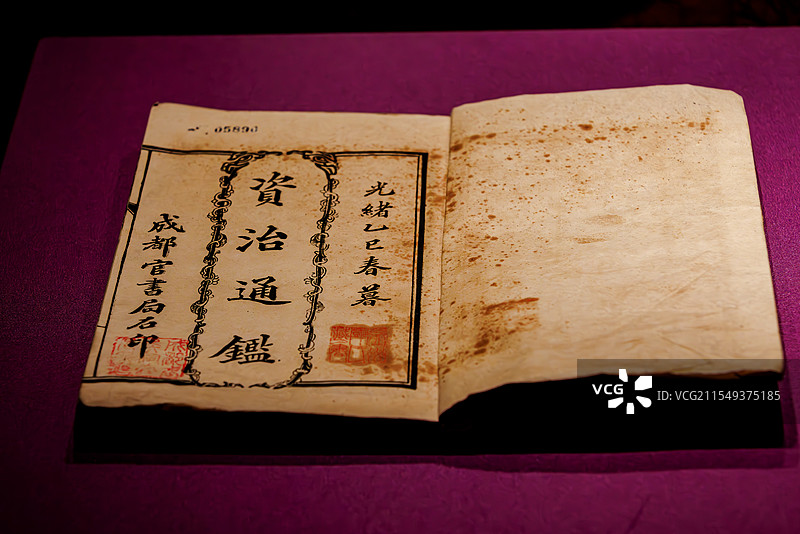 05890
光緒乙巳春暮
資治通鑑
成都官書局石印
VCG
ID:VCG211549375185